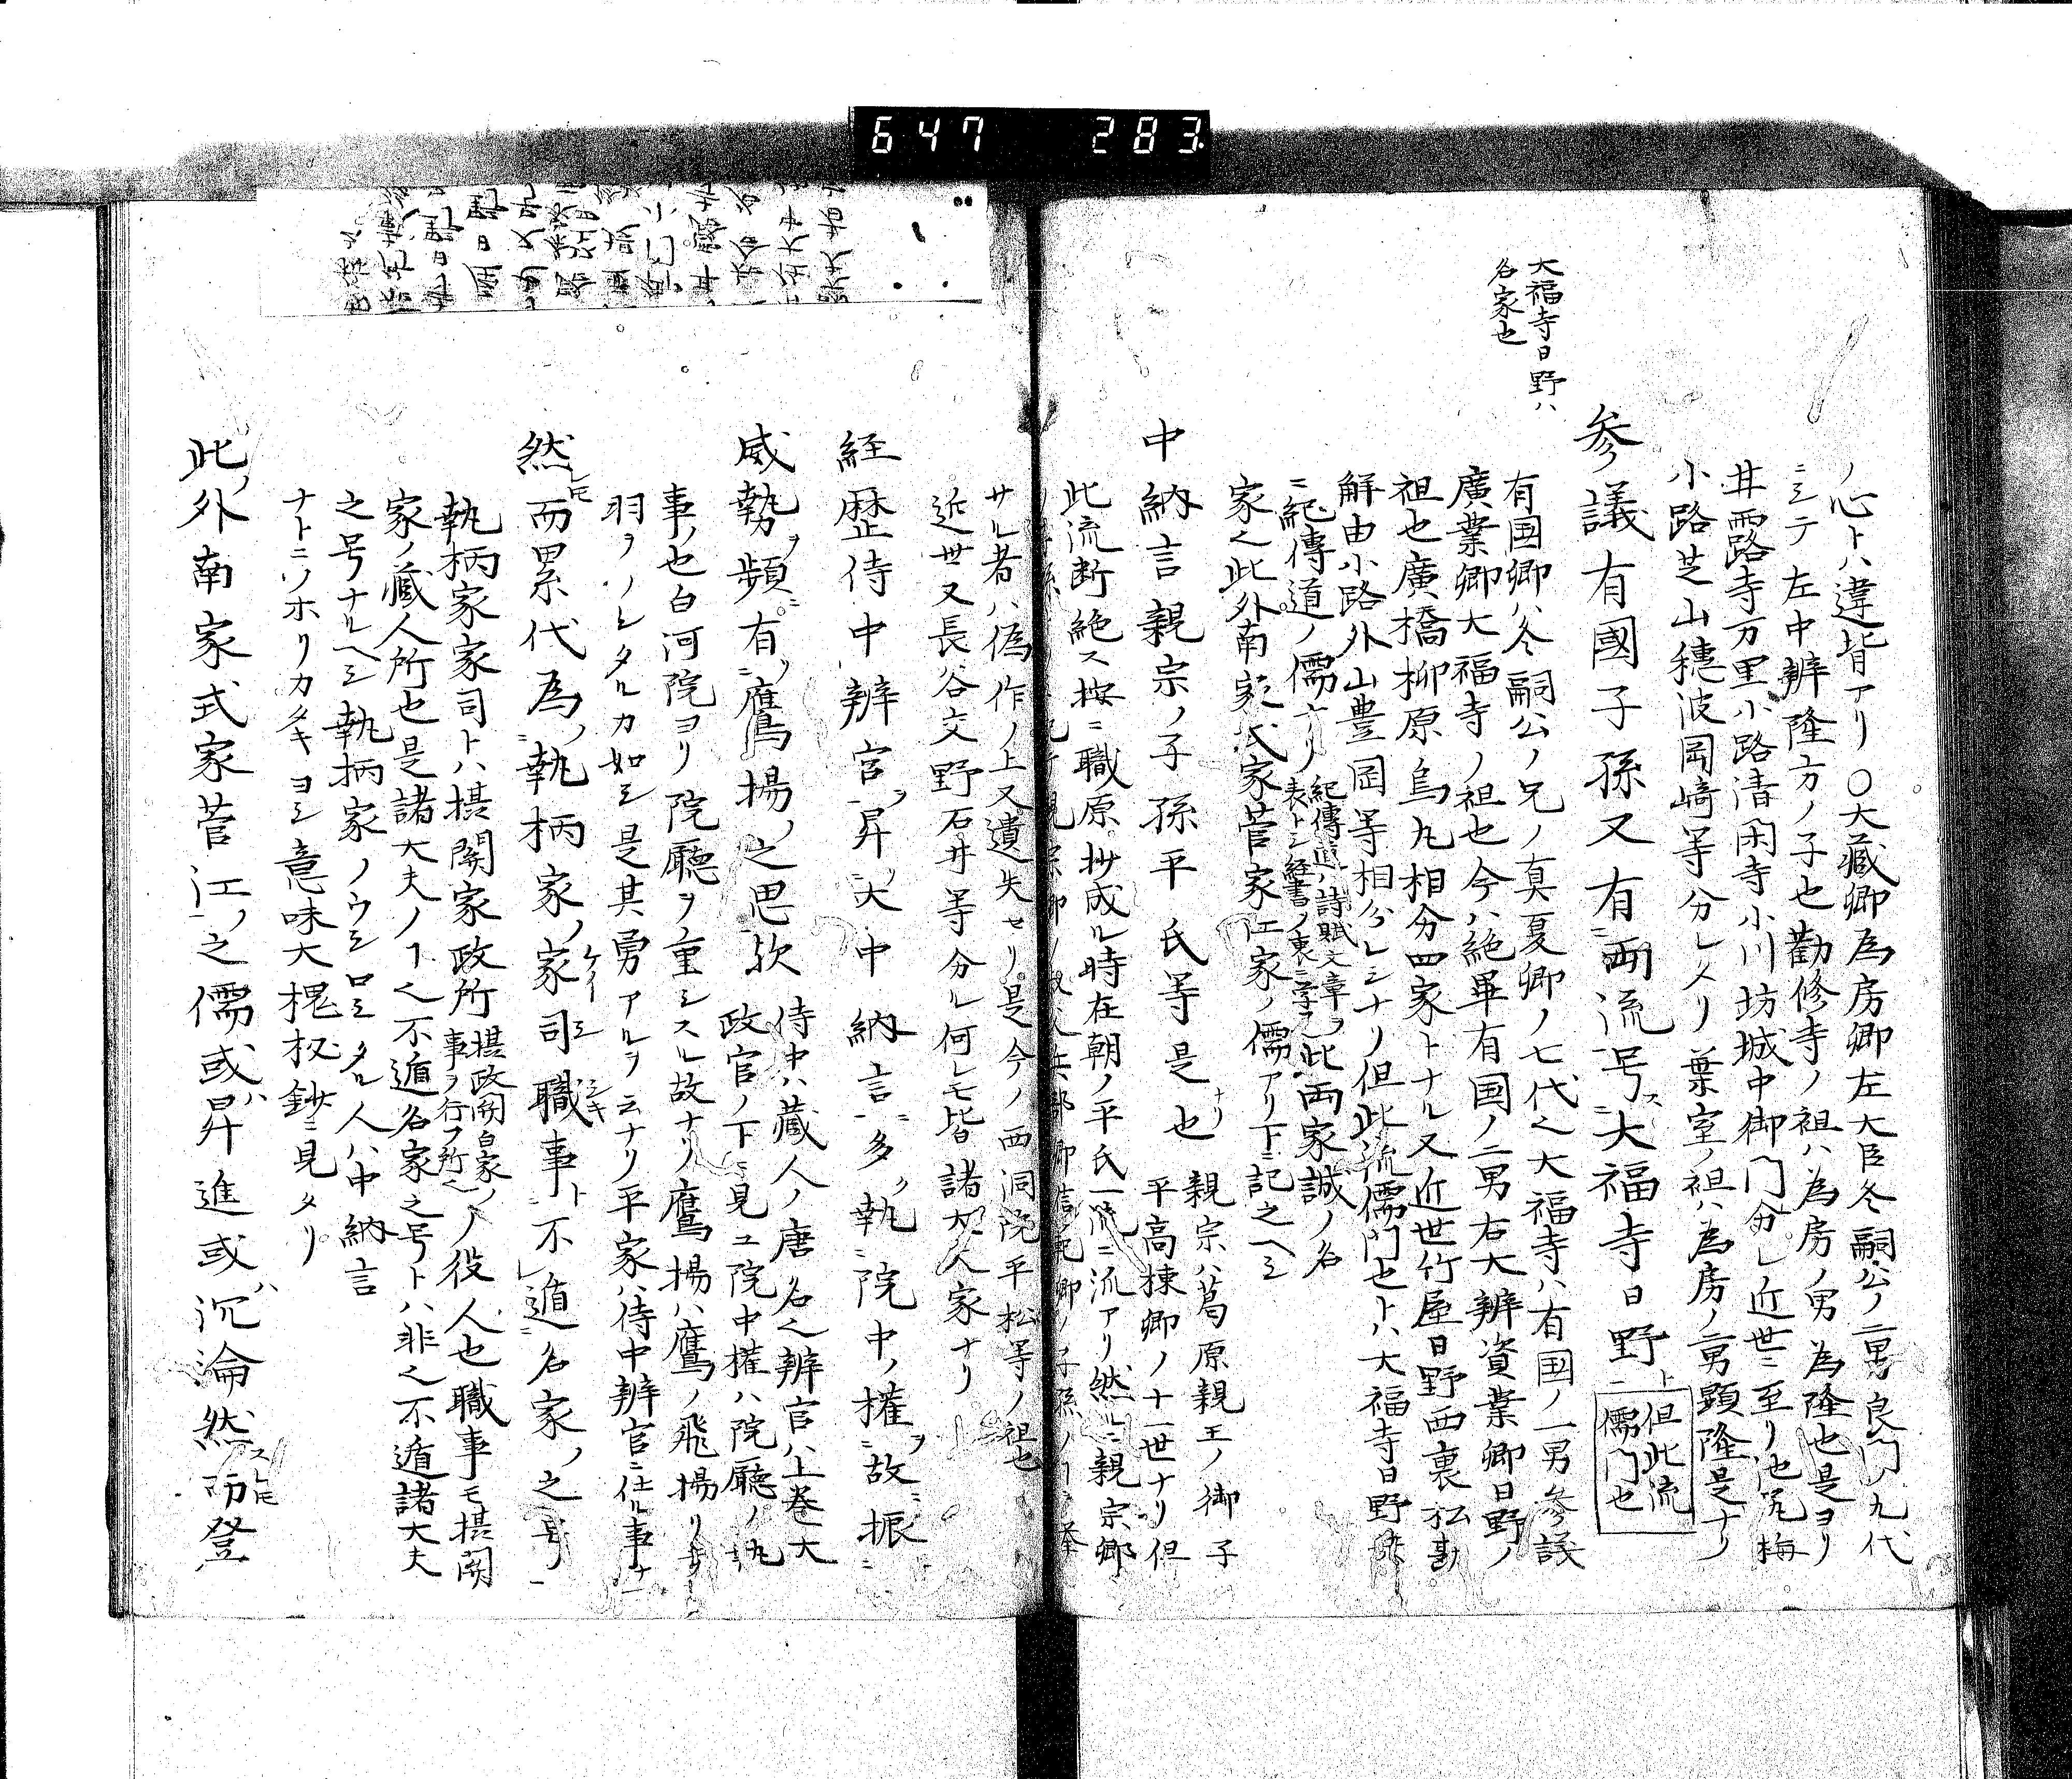 647 283
大福寺日野ハ
名家也
ノ心トハ違背アリ〇大藏卿為房卿左大臣冬嗣公ノ二男良門ノ九代
ニシテ左中辨隆方ノ子也勸修寺ノ祖ハ為房ノ男為隆也是ヨリ
井露寺万里小路清閑寺小川坊城中御門分レ近世ニ至リ池尻梅
小路芝山穗波岡﨑等分レメリ葉室ノ祖ハ為房ノ二男顕隆是ナリ
参議有國子孫又有両流号大福寺日野ト
但此流
儒門也
有国卿ハ冬嗣公ノ兄ノ真夏卿ノ七代之大福寺ハ有国ノ一男参議
廣業卿大福寺ノ祖也今ハ絶畢有国ノ二男右大辨資業卿日野ノ
祖也廣橋柳原烏丸相分四家トナル又近世竹屋日野西裏松勘
解由小路外山豊岡等相分レシナリ但此流儒門也トハ大福寺日野
ニ紀傳道ノ儒アリ
紀傳道ハ詩賦文章ヲ
表トシ経書ノ裏ニ学フ
此両家誠ノ名
家之此外南家式家菅家江家ノ儒アリ下ニ記之ヘシ
中納言親宗ノ子孫平氏等是也
親宗ハ葛原親王ノ御子
平高棟卿ノ十一世ナリ但
此流断絶ス按ニ職原抄成ル時在朝ノ平氏一流ニ流アリ然ニ親宗卿
サル者ハ偽作ノ上又遺失セリ是今ノ西洞院平松等ノ祖也
近世又長谷交野石井等分レ何レモ皆諸大夫家ナリ
経歴侍中辨官昇大中納言多執院中ノ権故振
威勢頻有鷹揚之思歟
侍中ハ藏人ノ唐名之辨官ハ上巻大
政官ノ下ニ見ユ院中権ハ院廳ノ執
事ノ也白河院ヨリ院廳ヲ重シスル故ナリ鷹揚ハ鷹ノ飛揚リ
羽ヲノシタルカ如シ是其勇アルヲ云ナリ平家ハ侍中辨官ニ仕ル事ナ
然而累代為執柄家ノ家司職事不遁名家之号
執柄家家司トハ摂関家政所
摂政関白家ノ
事ヲ行フ所之
ノ役人也職事モ摂関
家ノ藏人所也是諸大夫ノ丁之不遁名家之号トハ非之不遁諸大夫
之号ナルヘシ執柄家ノウシロミタル人ハ中納言
ナトニソホリカタキヨシ意味大槐秘鈔ニ見タリ
此外南家式家菅江之儒或昇進或沉淪然而登